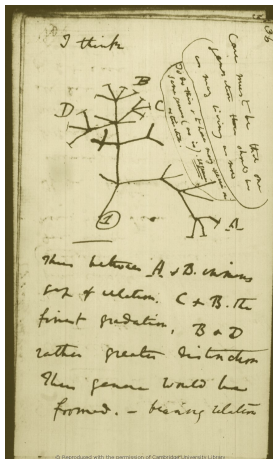 I think
36
B
C
D
A
1
Case must be that one
generation then should be
as many living as now
To do this & to have many species in
same genus (as is) requires
extinction.
Thus between A & B. immens
gap of relation. C & B. the
finest gradation, B & D
rather greater distinction
Thus genera would be
formed. — bearing relation
© Reproduced with the permission of Cambridge University Library